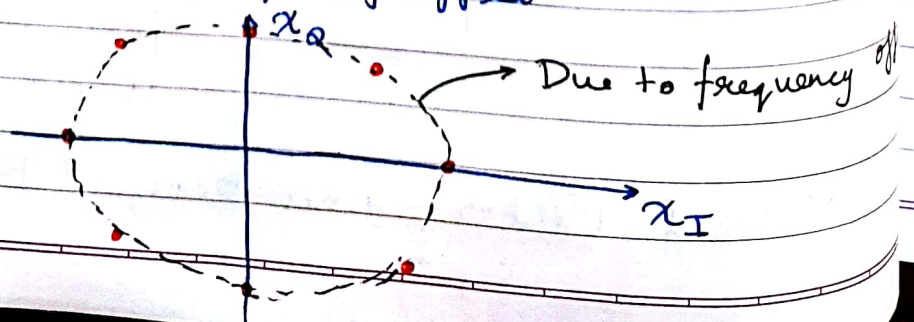 x_Q
Due to frequency off
x_I